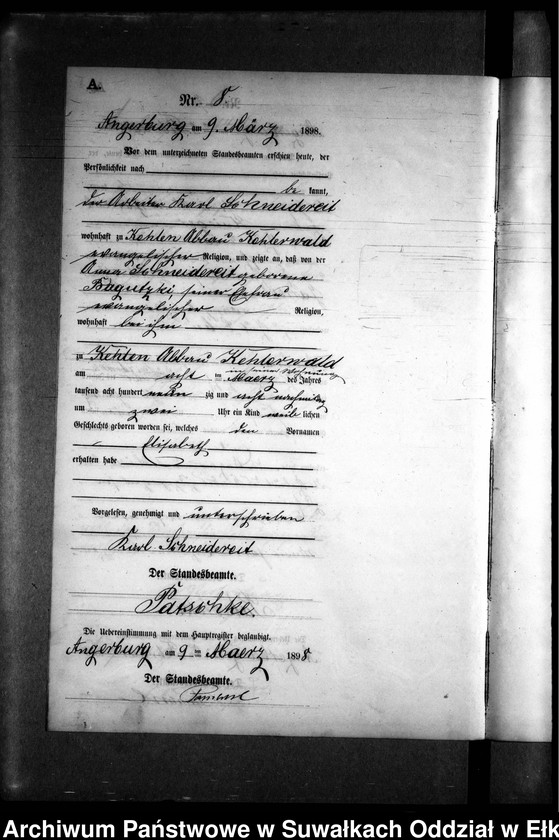 A.
Nr. 8.
Angerburg am 9. März 1898.
Vor dem unterzeichneten Standesbeamten erschien heute, der
Persönlichkeit nach
be kannt,
der Arbeiter Karl Schneidereit
wohnhaft zu Kehlen Abbau Kehlerwald
evangelischer Religion, und zeigte an, daß von der
Anna Schneidereit geborene
Bagutzki, seiner Ehefrau
evangelischer Religion,
wohnhaft bei ihm
zu Kehlen Abbau Kehlerwald
in seiner Wohnung
am acht ten Maerz des Jahres
tausend acht hundert neun zig und acht nachmittag
um zwei Uhr ein Kind weib lichen
Geschlechts geboren worden sei, welches den Vornamen
Elisabeth
erhalten habe
Vorgelesen, genehmigt und unterschrieben
Karl Schneidereit
Der Standesbeamte.
Pätschke.
Die Uebereinstimmung mit dem Hauptregister beglaubigt.
Angerburg am 9 ten Maerz 1898.
Der Standesbeamte.
Archiwum Państwowe w Suwałkach Oddział w Ełk